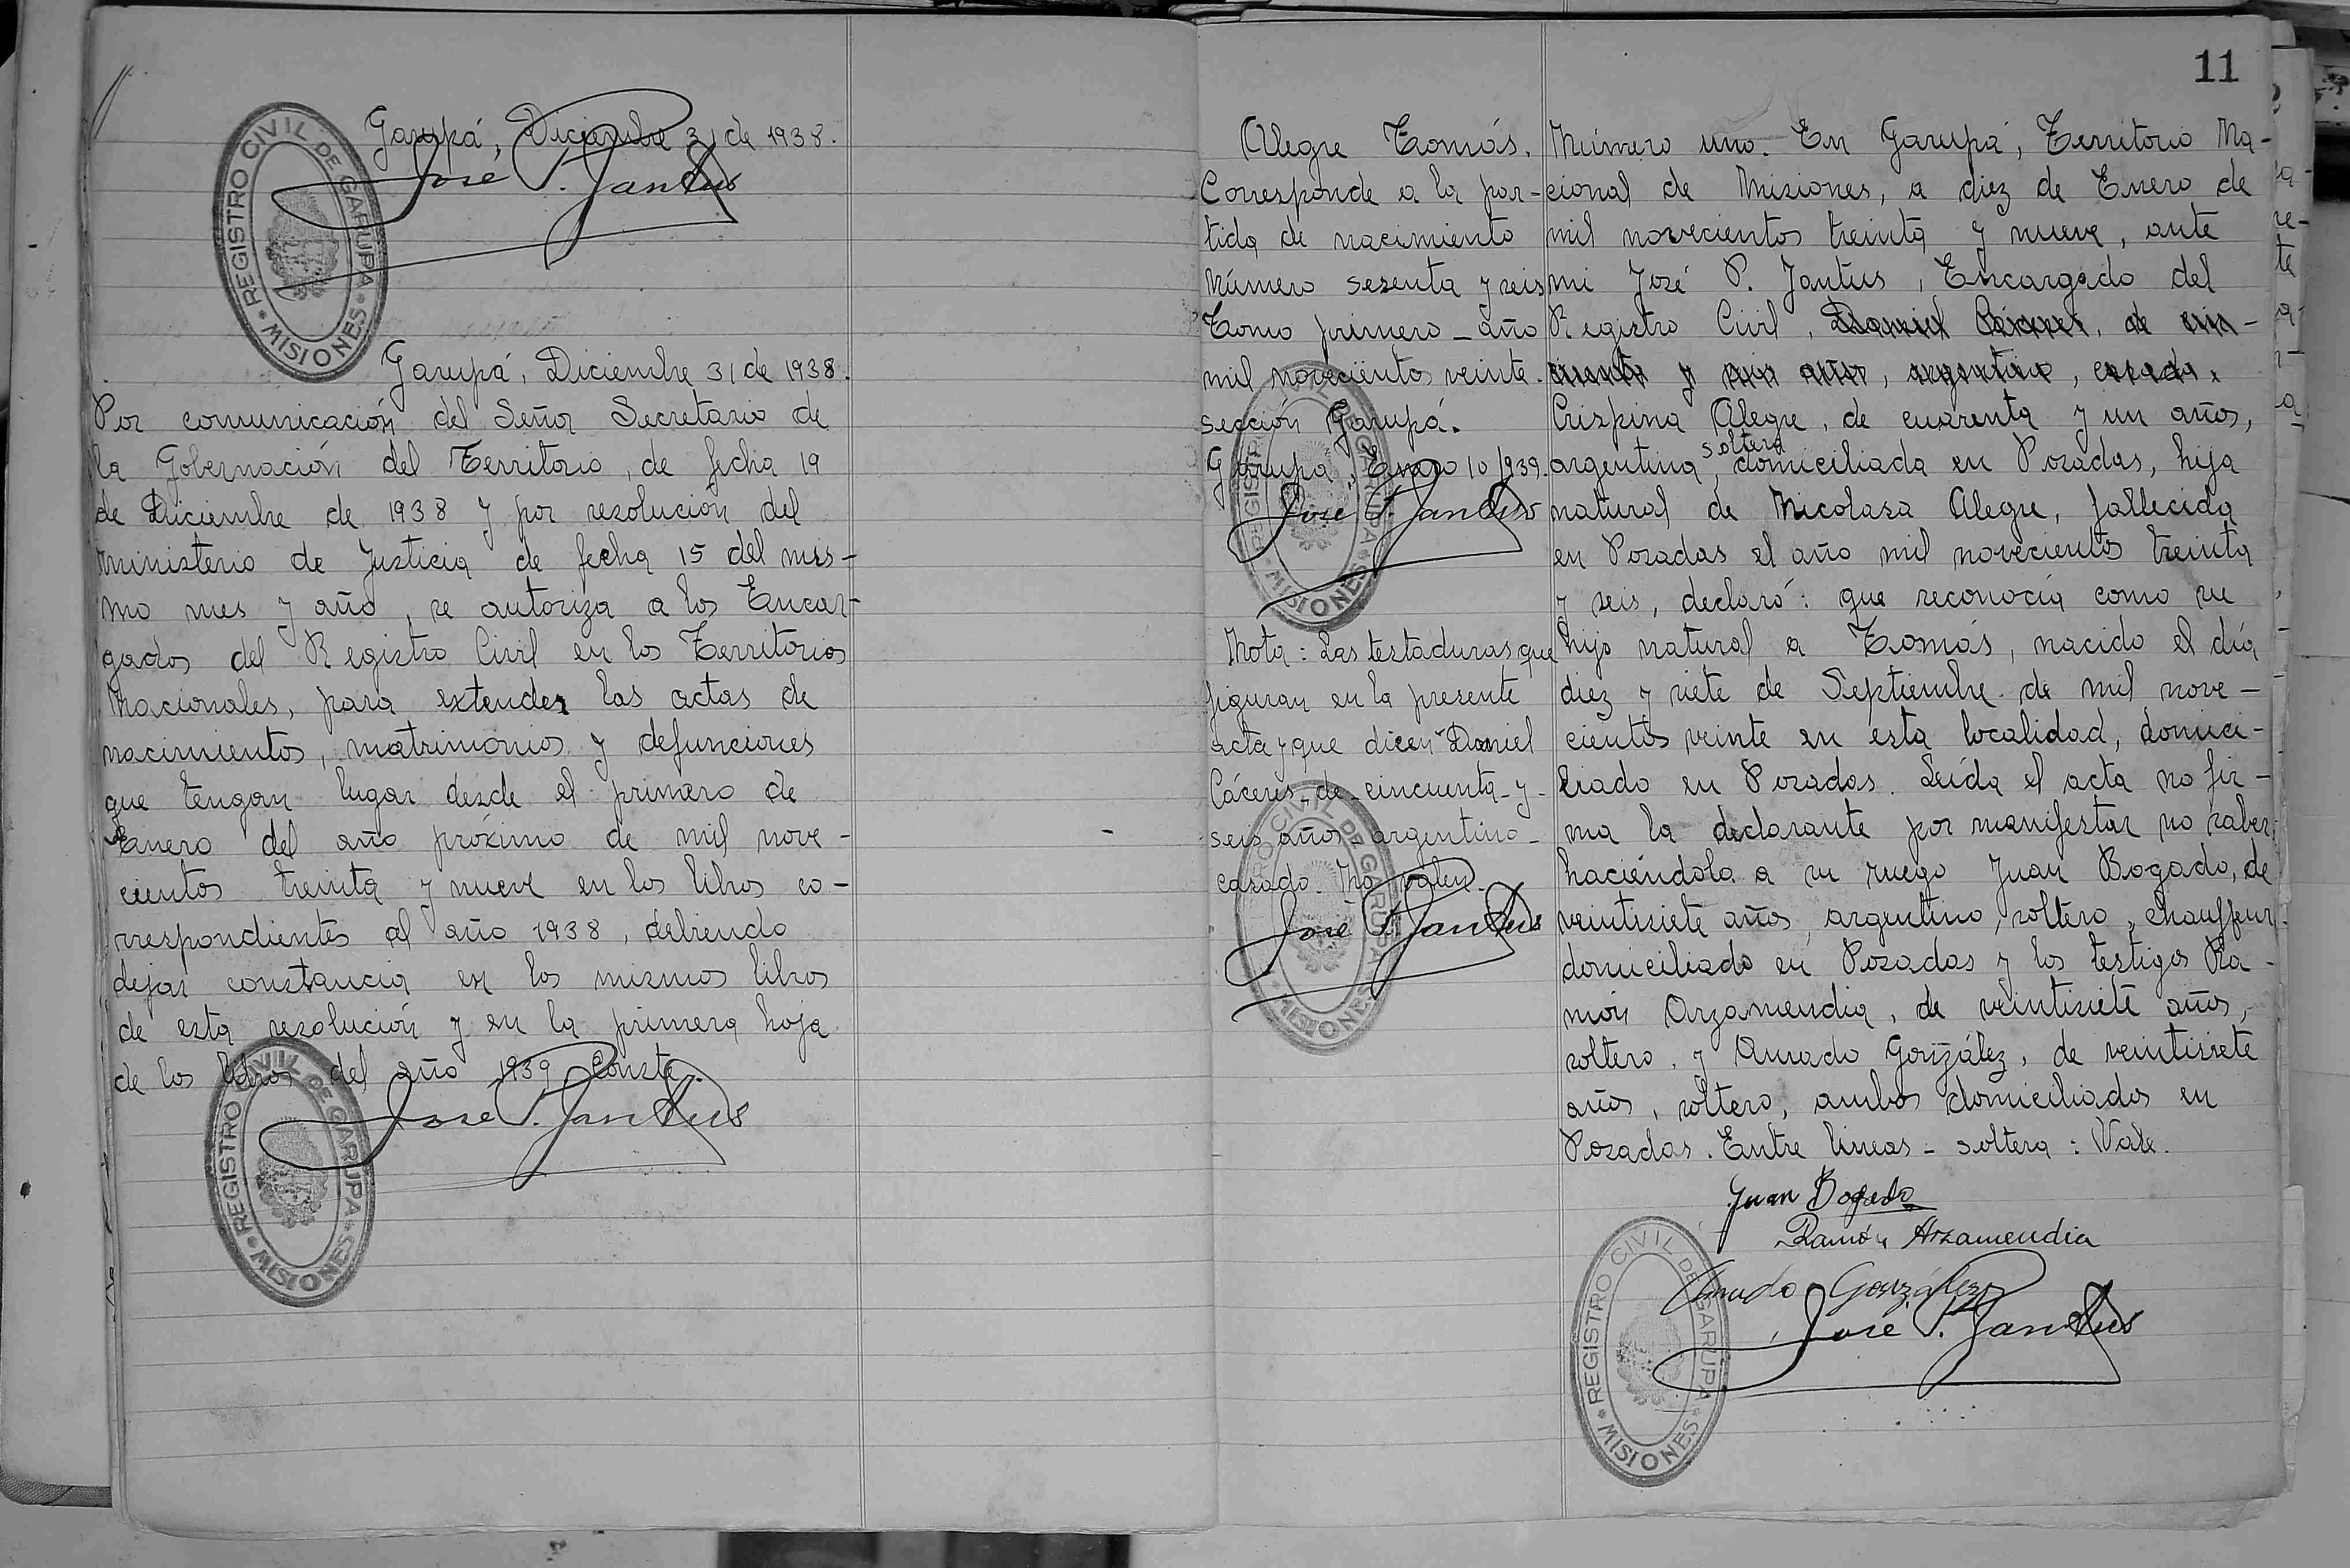 Garupá, Diciembre 31 de 1938.
José P. Jantus
REGISTRO CIVIL DE GARUPA
* MISIONES *
Garupá, Diciembre 31 de 1938.
Por comunicación del Señor Secretario de
la Gobernación del Territorio, de fecha 19
de Diciembre de 1938 y por resolución del
Ministerio de Justicia de fecha 15 del mis-
mo mes y año, se autoriza a los Encar-
gados del Registro Civil en los Territorios
Nacionales, para extender las actas de
nacimientos, matrimonios y defunciones
que tengan lugar desde el primero de
Enero del año próximo de mil nove-
cientos treinta y nueve en los libros co-
rrespondientes al año 1938, debiendo
dejar constancia en los mismos libros
de esta resolución y en la primera hoja
de los libros del año 1939. Conste.
José P. Jantus
REGISTRO CIVIL DE GARUPA
* MISIONES *
11
Alegre Tomás.
Corresponde a la par-
tida de nacimiento
Número sesenta y seis
Tomo primero - año
mil novecientos veinte.
sección Garupá.
Garupá, Enero 10/939.
José P. Jantus
REGISTRO CIVIL DE GARUPA
* MISIONES *
Nota: Las testaduras que
figuran en la presente
acta y que dicen "Daniel
Cáceres - de - cincuenta - y -
seis años argentino -
casado. No valen.
José P. Jantus
REGISTRO CIVIL DE GARUPA
* MISIONES *
Número uno. En Garupá, Territorio Na-
cional de Misiones, a diez de Enero de
mil novecientos treinta y nueve, ante
mi José P. Jantus, Encargado del
Registro Civil, Daniel Cáceres, de cin-
cuenta y seis años, argentino, casado,
Crispina Alegre, de cuarenta y un años,
soltera
argentina, domiciliada en Posadas, hija
natural de Nicolasa Alegre, fallecida
en Posadas el año mil novecientos treinta
y seis, declaró: que reconocía como su
hijo natural a Tomás, nacido el día
diez y siete de Septiembre de mil nove-
cientos veinte en esta localidad, domici-
liado en Posadas. Leída el acta no fir-
ma la declarante por manifestar no saber,
haciéndola a su ruego Juan Bogado, de
veintisiete años, argentino, soltero, chauffeur,
domiciliado en Posadas y los testigos Ra-
món Arzamendia, de veintisiete años,
soltero, y Amado González, de veintisiete
años, soltero, ambos domiciliados en
Posadas. Entre líneas - soltera: Vale.
Juan Bogado
Ramón Arzamendia
Amado González
José P. Jantus
REGISTRO CIVIL DE GARUPA
* MISIONES *